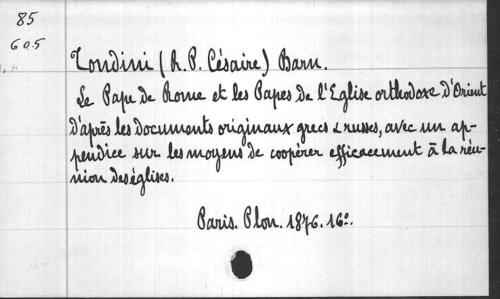 85
605
Tondini (R. P. Césaire) Barn.
Le Pape de Rome et les Papes de l'Eglise orthodoxe d'Orient
d'après les documents originaux grecs & russes, avec un ap-
pendice sur les moyens de coopérer efficacement à la réu-
nion des églises.
Paris. Plon. 1876. 16º.